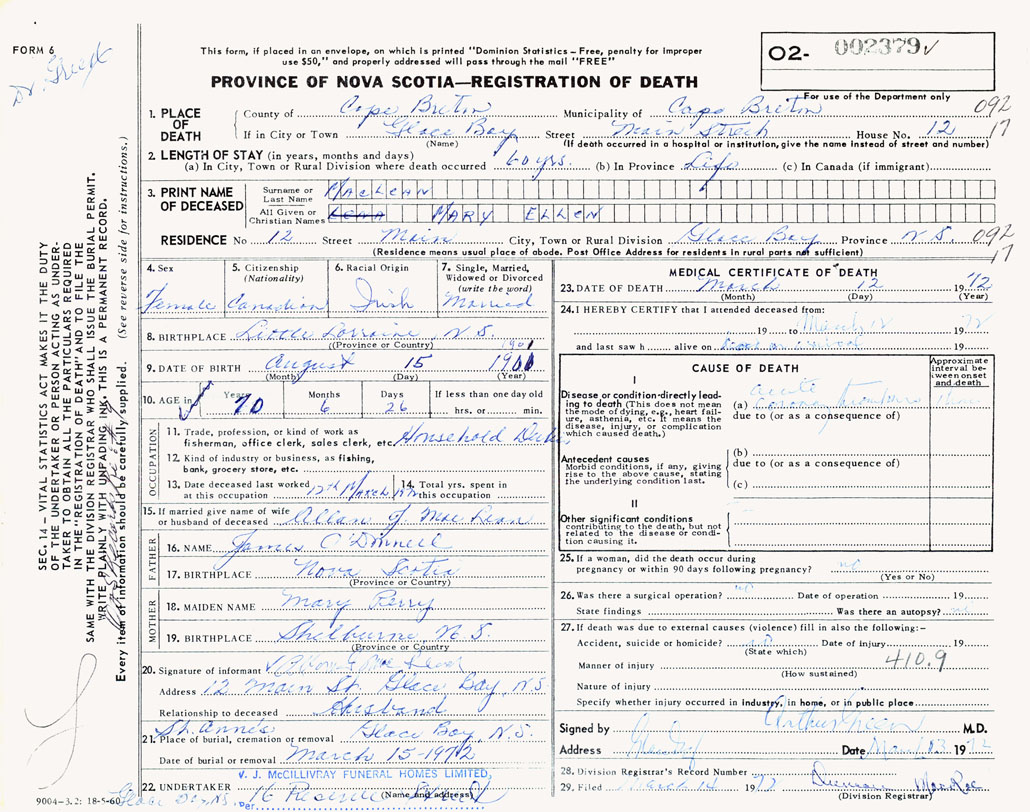 FORM 6
Dr. Green
This form, if placed in an envelope, on which is printed "Dominion Statistics – Free, penalty for improper
use $50," and properly addressed will pass through the mail "FREE"
PROVINCE OF NOVA SCOTIA—REGISTRATION OF DEATH
O2- 002379
For use of the Department only
092
17
1. PLACE OF DEATH
County of Cape Breton Municipality of Cape Breton
If in City or Town Glace Bay Street Main Street House No. 12
(Name) (If death occurred in a hospital or institution, give the name instead of street and number)
2. LENGTH OF STAY (in years, months and days)
(a) In City, Town or Rural Division where death occurred 60 yrs. (b) In Province Life (c) In Canada (if immigrant)
3. PRINT NAME OF DECEASED
Surname or Last Name MACLEAN
All Given or Christian Names MARY ELLEN
RESIDENCE No 12 Street Main City, Town or Rural Division Glace Bay Province N S 092
17
(Residence means usual place of abode. Post Office Address for residents in rural parts not sufficient)
4. Sex
Female
5. Citizenship (Nationality)
Canadian
6. Racial Origin
Irish
7. Single, Married, Widowed or Divorced (write the word)
Married
8. BIRTHPLACE Little Lorraine, N S.
(Province or Country)
1901
9. DATE OF BIRTH August 15 1901
(Month) (Day) (Year)
10. AGE in
Years 70
Months 6
Days 26
If less than one day old
hrs. or min.
OCCUPATION
11. Trade, profession, or kind of work as
fisherman, office clerk, sales clerk, etc. Household Duties
12. Kind of industry or business, as fishing,
bank, grocery store, etc.
13. Date deceased last worked
at this occupation 12th March 1972
14. Total yrs. spent in
this occupation
15. If married give name of wife
or husband of deceased Allan J Mac Lean
FATHER
16. NAME James O'Donnell
17. BIRTHPLACE Nova Scotia
(Province or Country)
MOTHER
18. MAIDEN NAME Mary Perry
19. BIRTHPLACE Shelburne, N S.
(Province or Country)
20. Signature of informant
Address 12 Main St. Glace Bay, N S
Relationship to deceased Husband
St. Anne's Glace Bay N.S.
21. Place of burial, cremation or removal
Date of burial or removal March 15-1972
V. J. McGILLIVRAY FUNERAL HOMES LIMITED,
22. UNDERTAKER
(Name and address)
Glace Bay NS. Per. 16 Reserve Street
9004-3.2: 18-5-60
MEDICAL CERTIFICATE OF DEATH
23. DATE OF DEATH March 12 1972
(Month) (Day) (Year)
24. I HEREBY CERTIFY that I attended deceased from:
19 to March 12 1972
and last saw h alive on 19
CAUSE OF DEATH
Approximate interval between onset and death
I
Disease or condition directly leading to death (This does not mean the mode of dying, e.g., heart failure, asthenia, etc. It means the disease, injury, or complication which caused death.)
acute
(a) Coronary thrombosis
due to (or as a consequence of)
Antecedent causes
Morbid conditions, if any, giving rise to the above cause, stating the underlying condition last.
(b)
due to (or as a consequence of)
(c)
II
Other significant conditions
contributing to the death, but not related to the disease or condition causing it.
25. If a woman, did the death occur during
pregnancy or within 90 days following pregnancy? no
(Yes or No)
26. Was there a surgical operation? no Date of operation 19
State findings Was there an autopsy? no
27. If death was due to external causes (violence) fill in also the following:–
Accident, suicide or homicide? Date of injury 19
(State which)
Manner of injury 410.9
(How sustained)
Nature of injury
Specify whether injury occurred in industry, in home, or in public place
Signed by Arthur Green M.D.
Address Glace Bay Date Mar 13 1972
28. Division Registrar's Record Number
29. Filed March 14 1972 Duncan MacRae
(Division Registrar)
SEC. 14 – VITAL STATISTICS ACT MAKES IT THE DUTY
OF THE UNDERTAKER OR PERSON ACTING AS UNDER-
TAKER TO OBTAIN ALL THE PARTICULARS REQUIRED
IN THE "REGISTRATION OF DEATH" AND TO FILE THE
SAME WITH THE DIVISION REGISTRAR WHO SHALL ISSUE THE BURIAL PERMIT.
WRITE PLAINLY WITH UNFADING INK. THIS IS A PERMANENT RECORD.
Every item of information should be carefully supplied. (See reverse side for instructions.)